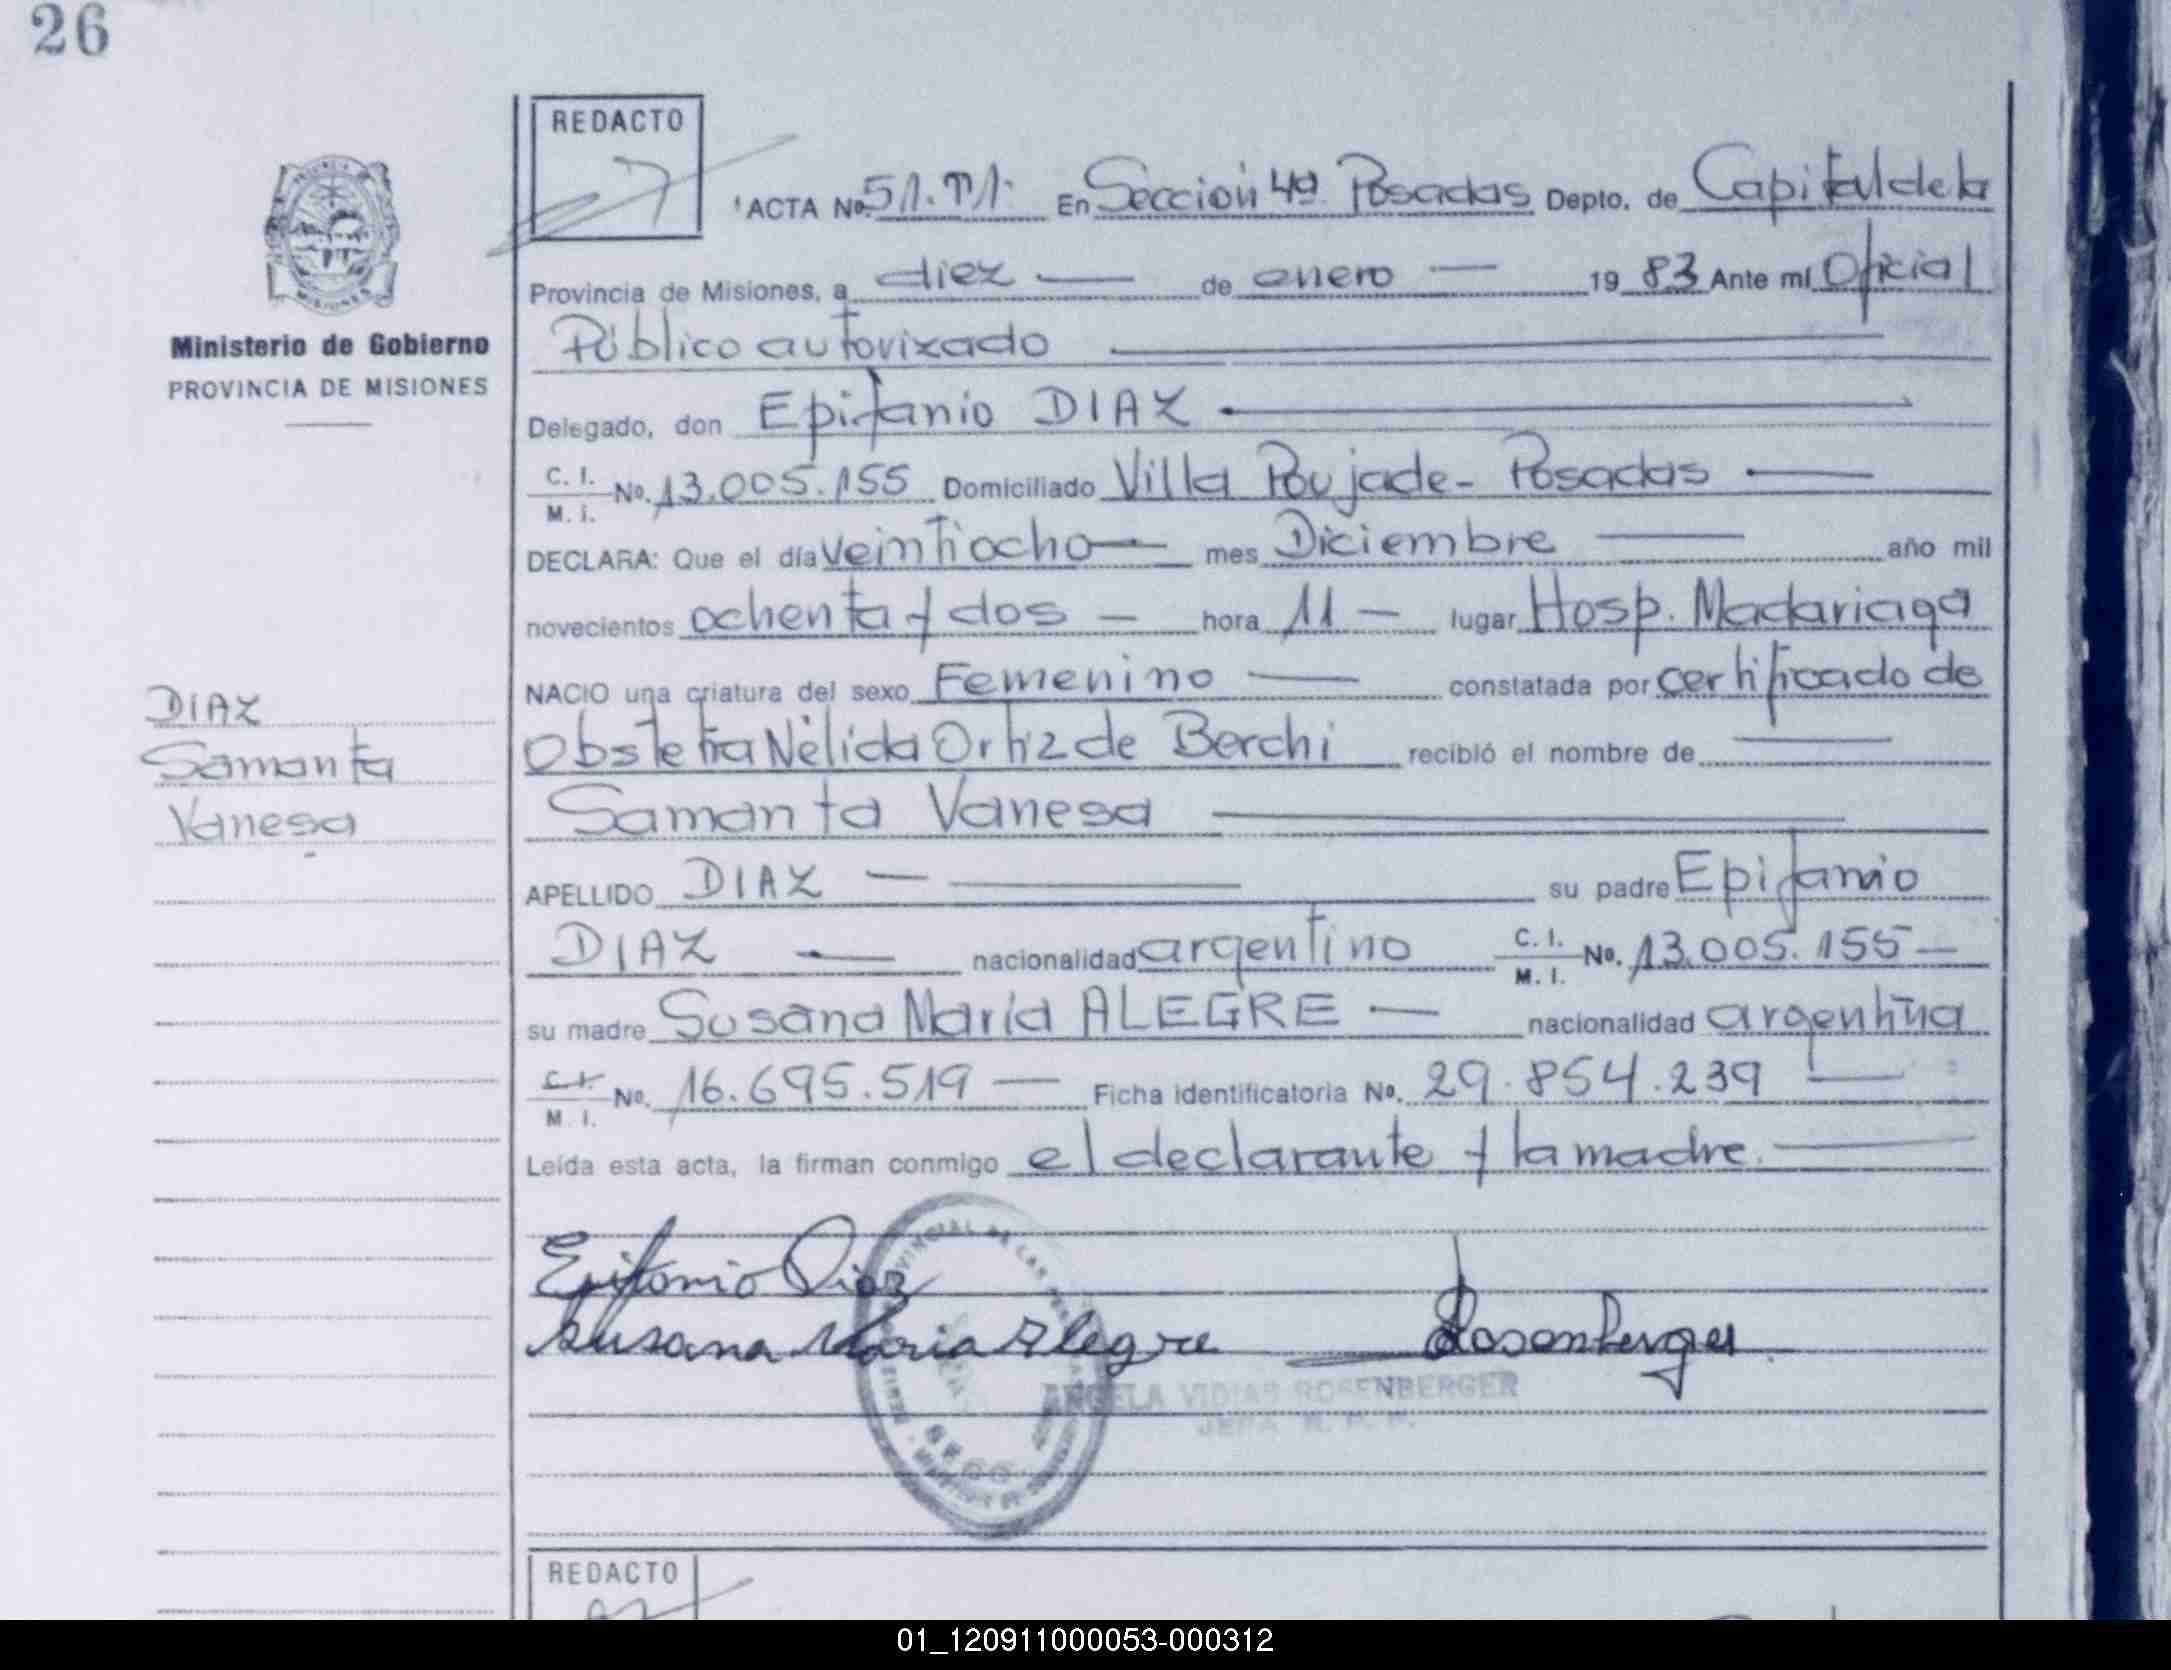 26
REDACTO
ACTA No. 51.T1. En Sección 4ª Posadas Depto. de Capital de la
Provincia de Misiones, a diez — de enero — 19 83 Ante mí Oficial
Público autorizado
Ministerio de Gobierno
PROVINCIA DE MISIONES
Delegado, don Epifanio DIAZ
C. I. M. I. No. 13.005.155 Domiciliado Villa Poujade - Posadas —
DECLARA: Que el día veintiocho — mes Diciembre — año mil
novecientos ochenta y dos — hora 11 — lugar Hosp. Madariaga
NACIO una criatura del sexo Femenino — constatada por certificado de
Obstetra Nélida Ortiz de Berchi recibió el nombre de —
Samanta Vanesa —
DIAZ
Samanta
Vanesa
APELLIDO DIAZ — su padre Epifanio
DIAZ — nacionalidad argentino C. I. M. I. No. 13.005.155 —
su madre Susana María ALEGRE — nacionalidad argentina
C. I. M. I. No. 16.695.519 — Ficha identificatoria No. 29.854.239 —
Leída esta acta, la firman conmigo el declarante y la madre. —
Epifanio Diaz
Susana Maria Alegre Rosenberger
ANGELA VIDIAS ROSENBERGER
REDACTO
01_120911000053-000312